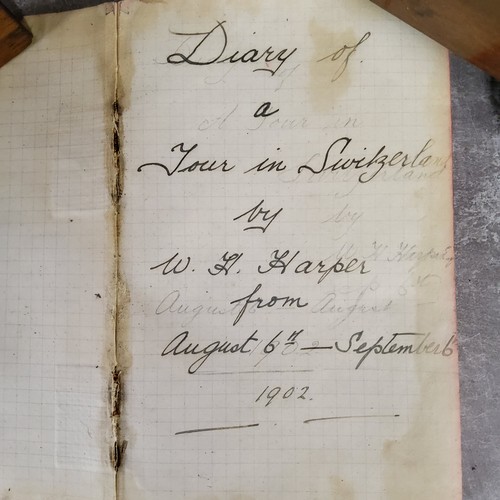 Diary of.
a
Tour in Switzerland
by
W. H. Harper
from
August 6th — September 6
1902.